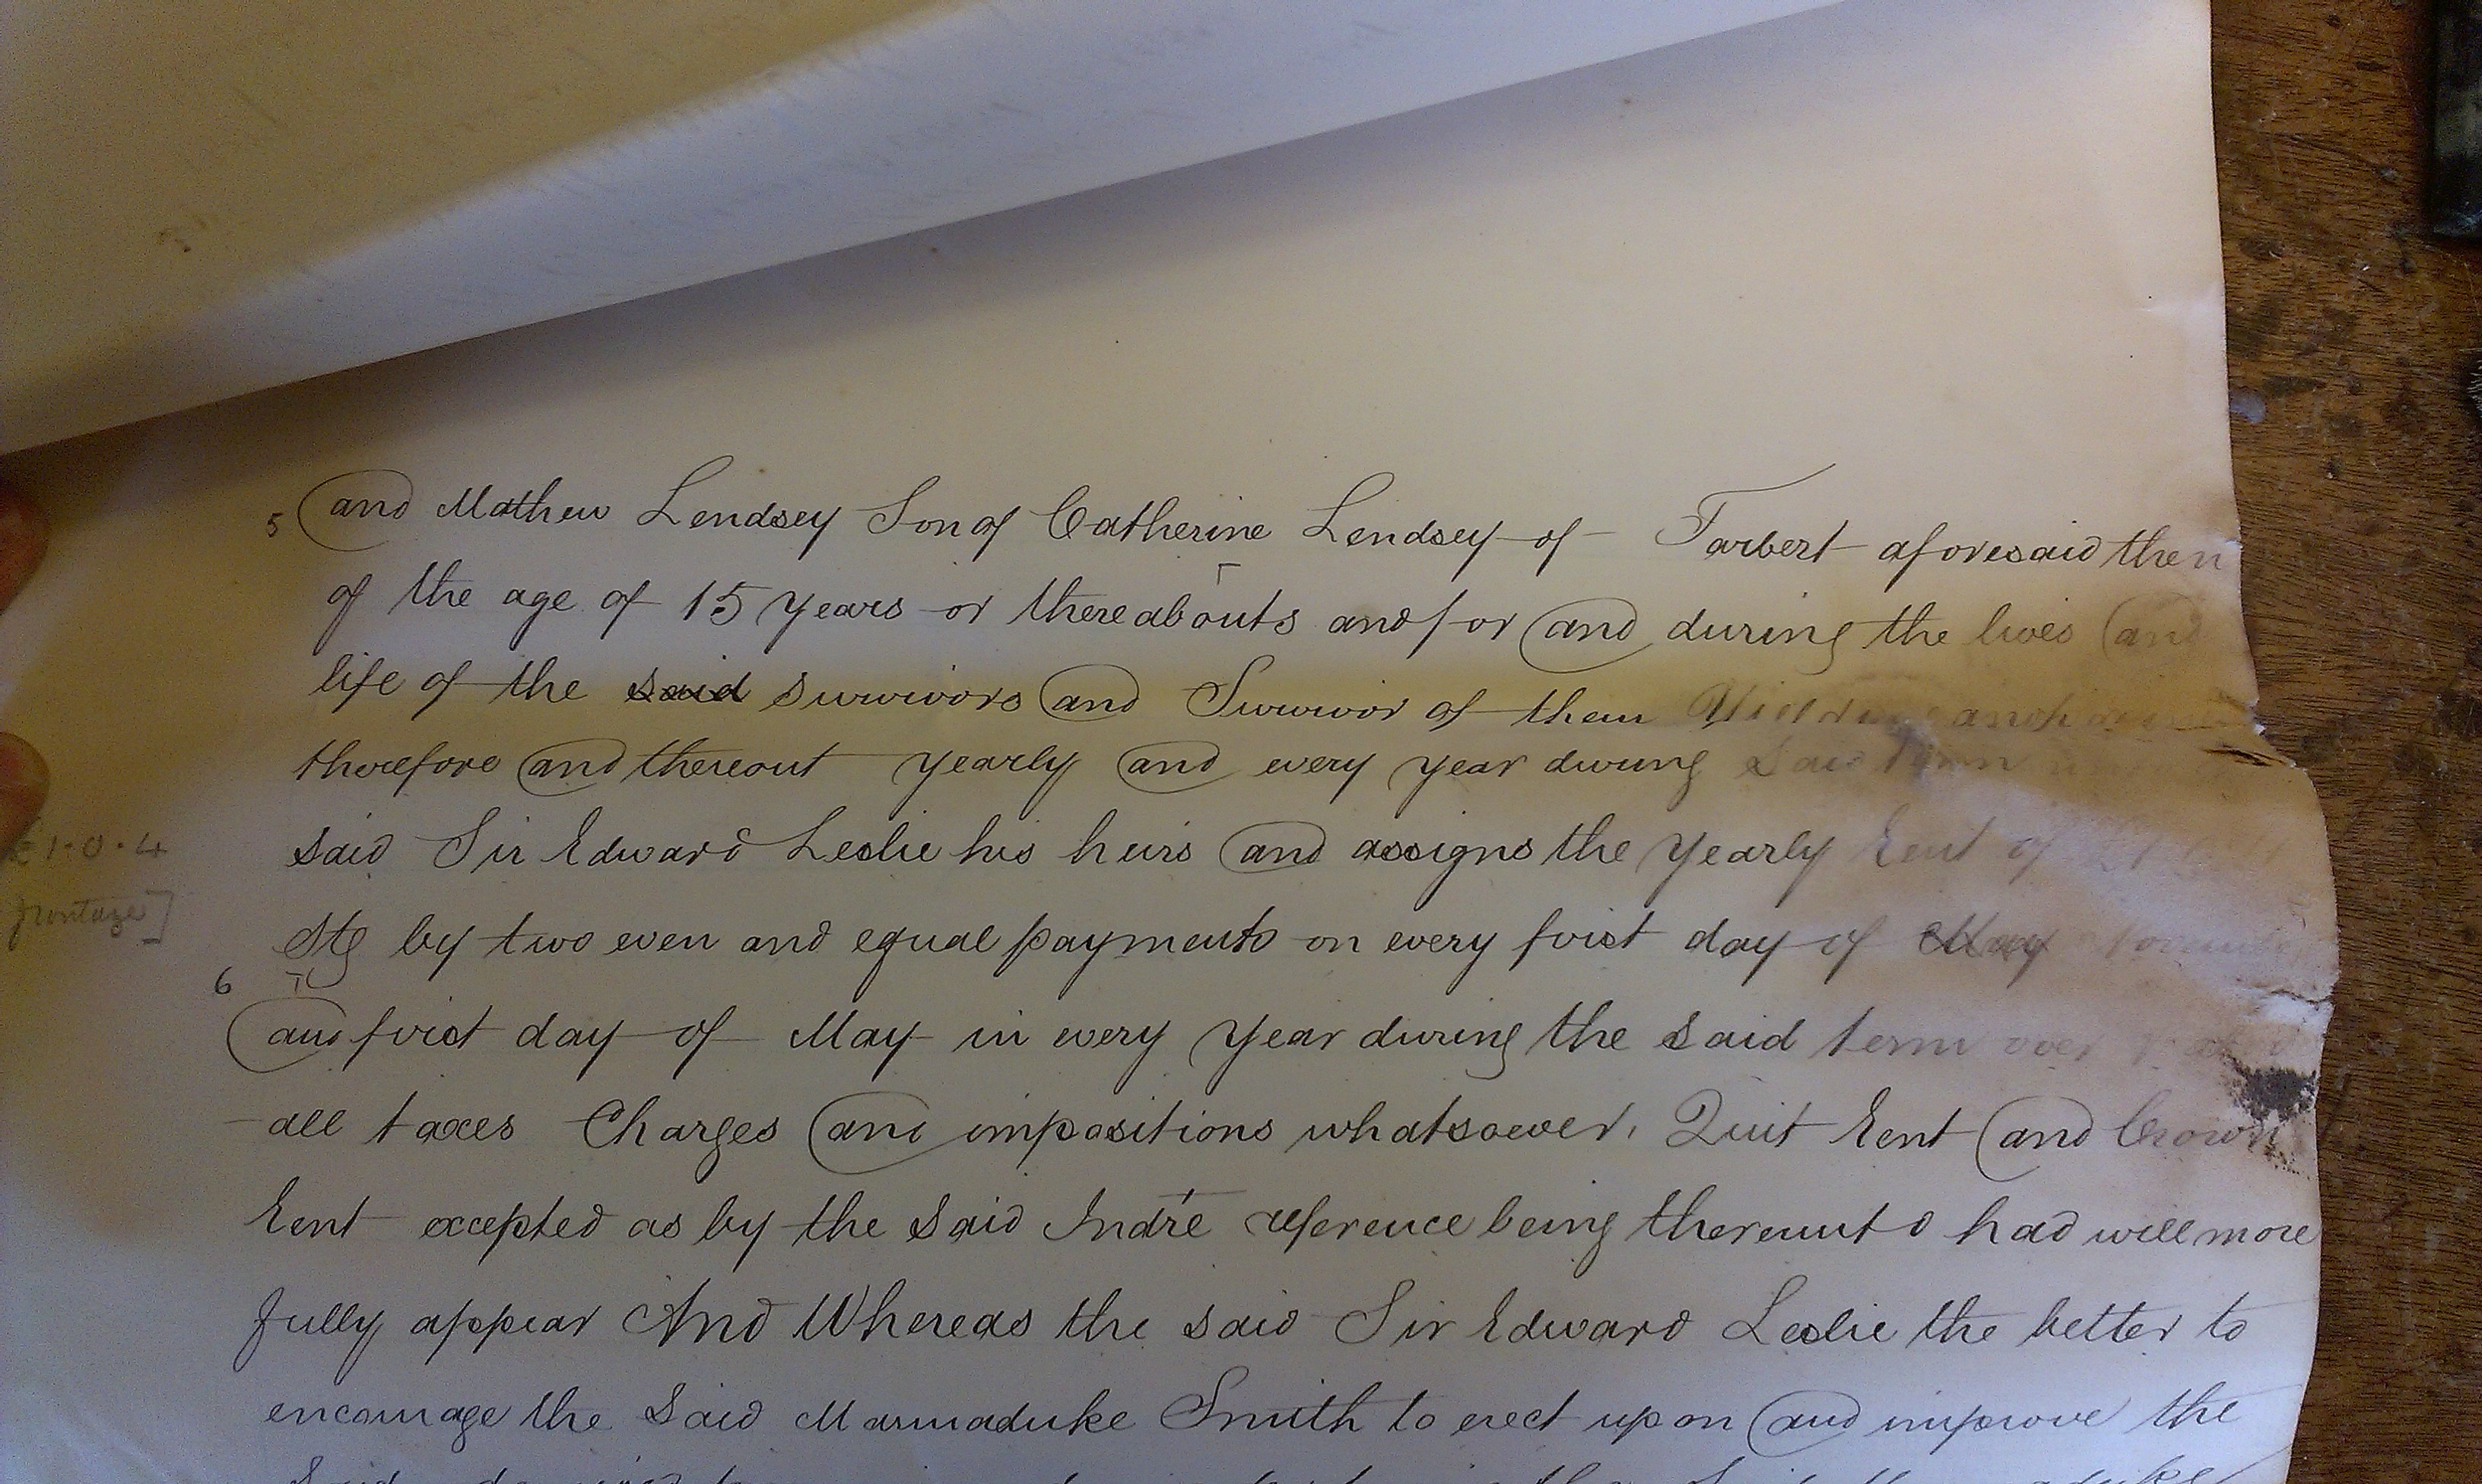 5 and Mathew Lendsey Son of Catherine Lendsey of Tarbert aforesaid then
of the age of 15 years or thereabouts and for and during the lives and
life of the said survivors and Survivor of them
therefore and thereout yearly and every year during said term
said Sir Edward Leslie his heirs and assigns the yearly Rent of
£1.0.4
frontage]
Stg by two even and equal payments on every first day of May
6 and first day of May in every year during the said term over
all taxes Charges and impositions whatsoever, Quit Rent and Crown
Rent excepted as by the said Indre reference being thereunto had will more
fully appear And Whereas the said Sir Edward Leslie the better to
encourage the said Marmaduke Smith to erect upon and improve the